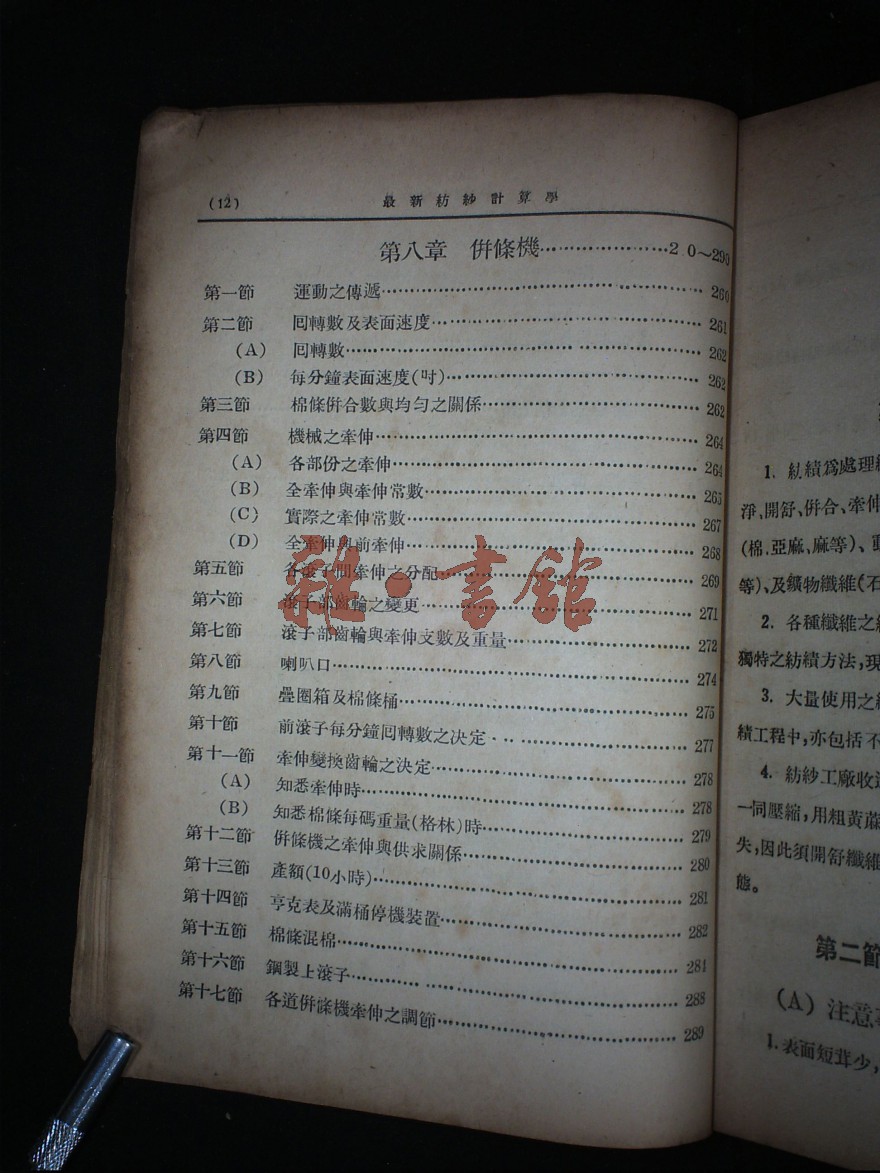 (12) 最新紡紗計算學
第八章 併條機………………2 0～290
第一節 運動之傳遞………………260
第二節 囘轉數及表面速度………………261
(A) 囘轉數………………262
(B) 每分鐘表面速度(吋)………………262
第三節 棉條併合數與均勻之關係………………262
第四節 機械之牽伸………………264
(A) 各部份之牽伸………………264
(B) 全牽伸與牽伸常數………………265
(C) 實際之牽伸常數………………267
(D) 全牽伸與前牽伸………………268
第五節 各滾子間牽伸之分配………………269
第六節 滾子部齒輪之變更………………271
第七節 滾子部齒輪與牽伸支數及重量………………272
第八節 喇叭口………………274
第九節 疊圈箱及棉條桶………………275
第十節 前滾子每分鐘囘轉數之決定………………277
第十一節 牽伸變換齒輪之決定………………278
(A) 知悉牽伸時………………278
(B) 知悉棉條每碼重量(格林)時………………279
第十二節 併條機之牽伸與供求關係………………280
第十三節 產額(10小時)………………281
第十四節 亨克表及滿桶停機裝置………………282
第十五節 棉條混棉………………284
第十六節 鋼製上滾子………………288
第十七節 各道併條機牽伸之調節………………289
雜·書館
1. 紡績爲處理
淨、開舒、併合、牽伸
(棉、亞麻、麻等)、
等)、及鑛物纖維(石
2. 各種纖維之
獨特之紡績方法,現
3. 大量使用之
績工程中,亦包括不
4. 紡紗工廠收
一同壓縮,用粗黃蔴
失,因此須開舒纖維
態。
第二節
(A) 注意
1. 表面短茸少,